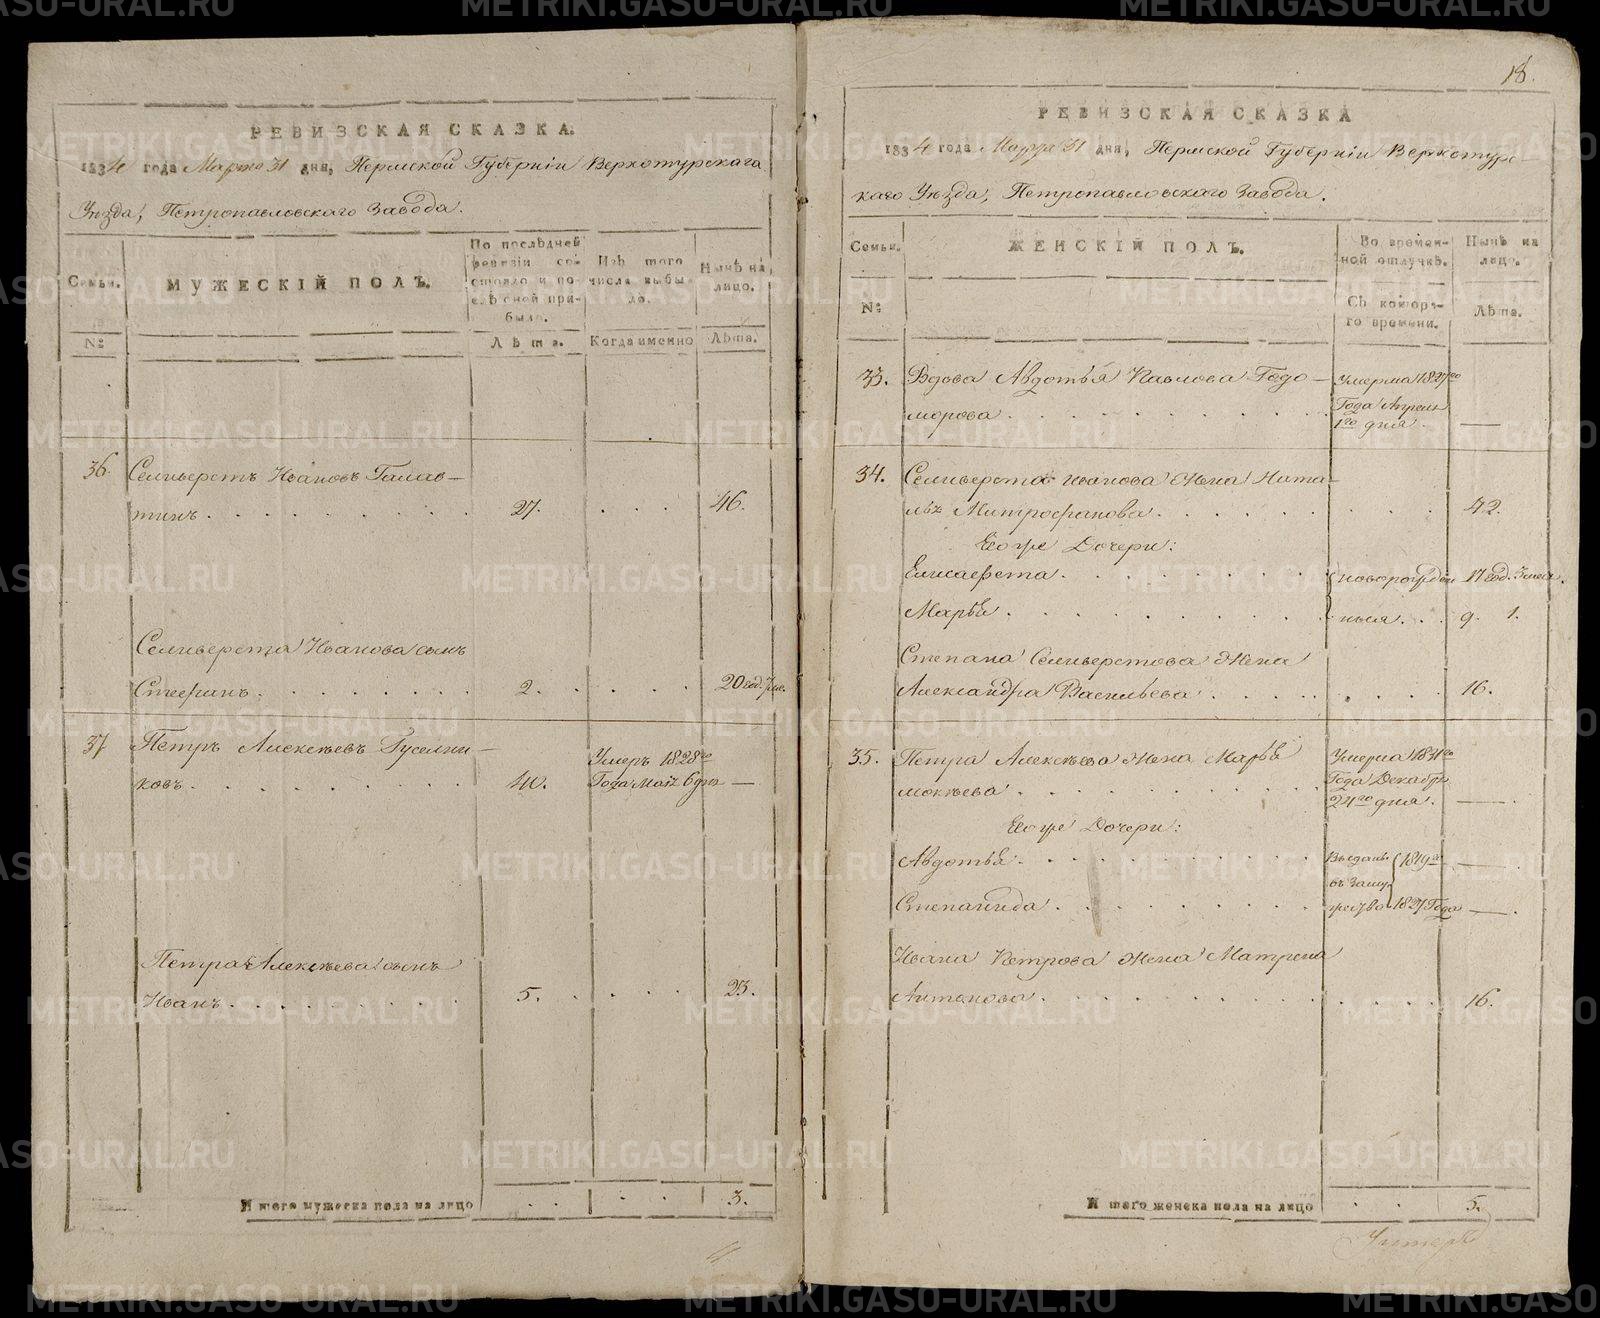 18.
РЕВИЗСКАЯ СКАЗКА.
1834 года Марта 31 дня, Пермской Губерніи Верхотурскаго
Уѣзда, Петропавловскаго Завода.
Семьи.
МУЖЕСКІЙ ПОЛЪ.
По послѣдней ревизіи состояло и послѣ оной прибыло.
Изъ того числа выбыло.
Нынѣ на лицо.
№
Лѣта.
Когда именно
Лѣта.
36. Селиверстъ Ивановъ Галав-
тинъ 27. 46.
Селиверста Иванова сынъ
Стефанъ 2. 20 год.
37 Петръ Алексѣевъ Гуселни-
ковъ 40. Умеръ 1828го
Года Маія 6 дня —
Петра Алексѣева сынъ
Иванъ 5. 23.
И того мужеска пола на лицо 3.
РЕВИЗСКАЯ СКАЗКА
1834 года Марта 31 дня, Пермской Губерніи Верхотурс-
каго Уѣзда, Петропавловскаго Завода.
Семьи.
ЖЕНСКІЙ ПОЛЪ.
Во временной отлучкѣ.
Нынѣ на лицо.
№
Съ которого времени.
Лѣта.
33. Вдова Авдотья Павлова Годо-
морова Умерла 1827го
Года Апреля
1го дня. —
34. Селиверста Иванова Жена Ната-
лья Митрофанова 42.
Его же Дочери:
Елисавета новорожден 17 год. 3 меся.
Марья ныя 9. 1.
Степана Селиверстова Жена
Александра Васильева 16.
35. Петра Алексѣева Жена Марья
Мокѣева Умерла 1831го
Года Декабря
24го дня. —
Его же Дочери:
Авдотья Выданы 1819го —
въ Заму
Степанида жество 1827 Года —
Ивана Петрова Жена Матрена
Антонова 16.
И того женска пола на лицо 5.
METRIKI.GASO-URAL.RU